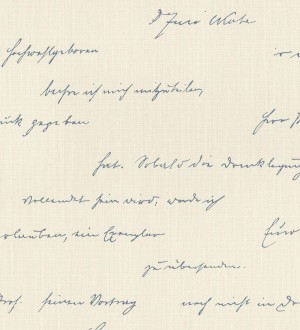 Hochwohlgeboren
beehre ich mich mitzuteilen,
ruck gegeben
hat. Sobald die Drucklegung
vollendet sein wird, werde ich
erlauben, ein Exemplar
zu übersenden.
Prof. seinen Vortrag noch nicht in